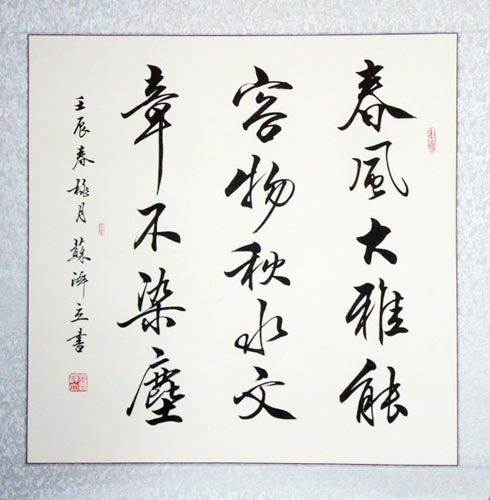 春風大雅能
容物秋水文
章不染塵
壬辰春極月蘇澤立書